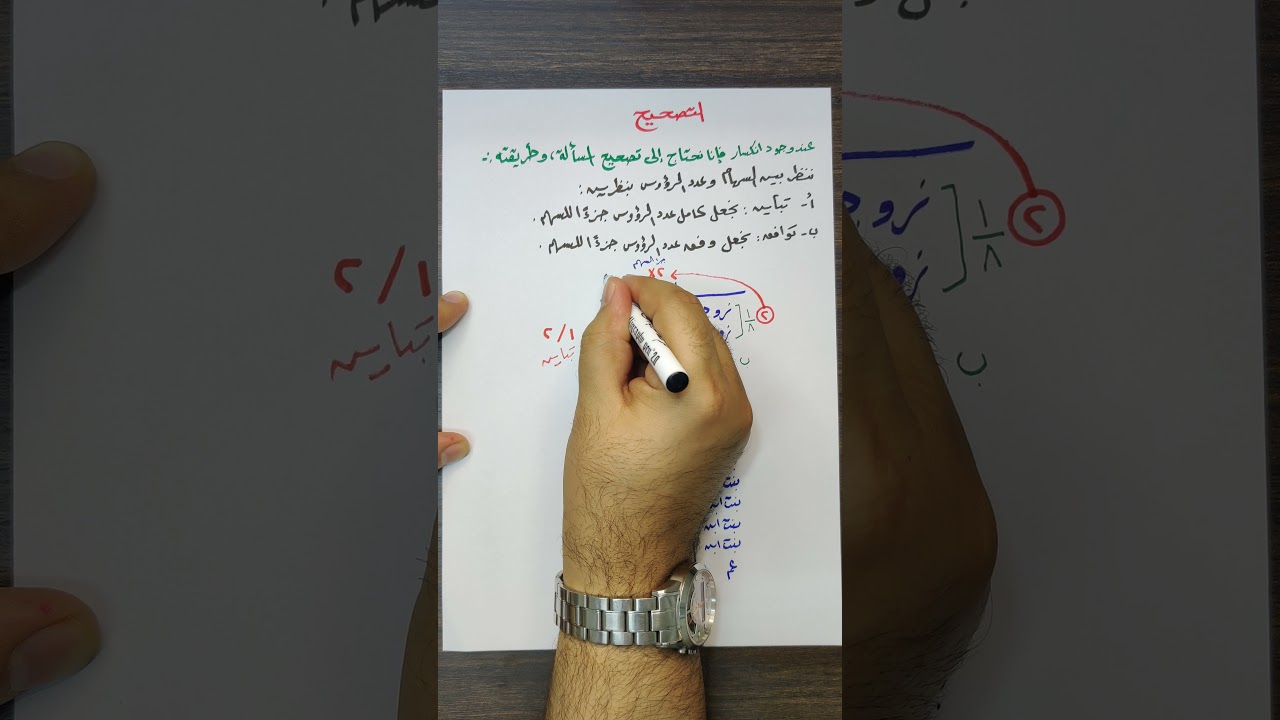 التصحيح
عند وجود انكسار فإنا نحتاج إلى تصحيح المسألة، وطريقته :-
ننظر بين السهام وعدد الرؤوس بنظرين :
أ- تباين : نجعل كامل عدد الرؤوس جزءًا للسهم .
ب- توافق : نجعل وفق عدد الرؤوس جزءًا للسهم .
جزء السهم
×٢
٢ ١/٨ زوج
٢/١
تباين
ب
بنت
بنت ابن
بنت ابن
بنت ابن
عم